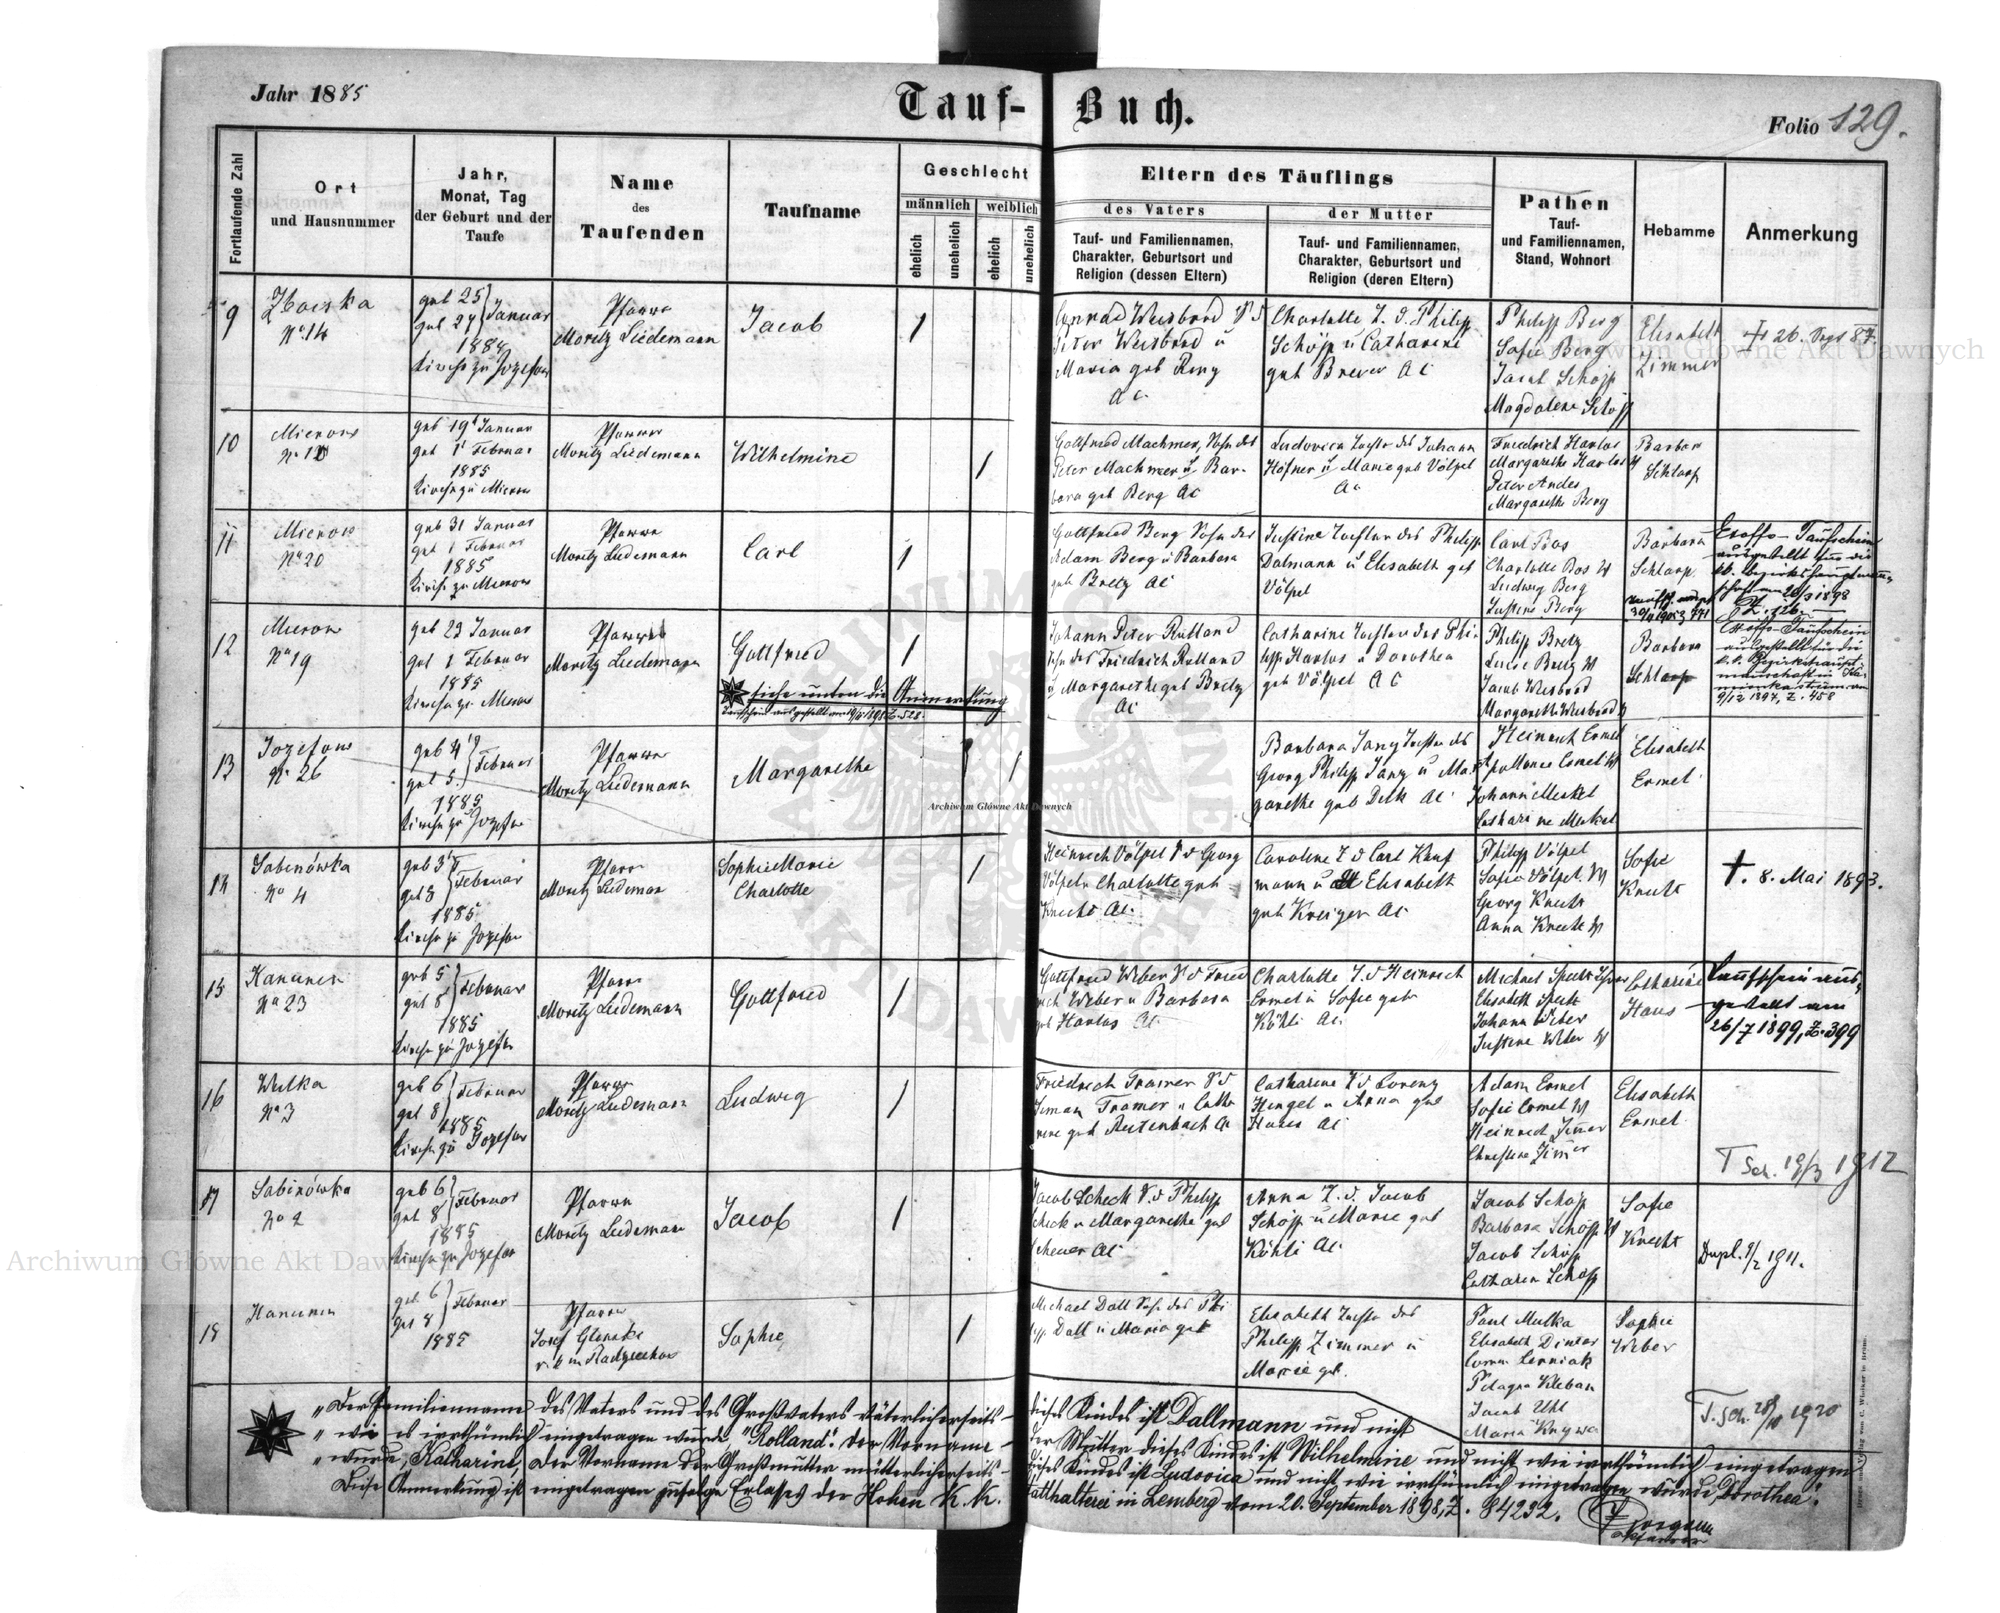 Jahr 1885
Tauf-Buch.
Folio 129.
Fortlaufende Zahl
Ort
und Hausnummer
Jahr,
Monat, Tag
der Geburt und der
Taufe
Name
des
Taufenden
Taufname
Geschlecht
männlich
weiblich
ehelich
unehelich
ehelich
unehelich
Eltern des Täuflings
des Vaters
Tauf- und Familiennamen,
Charakter, Geburtsort und
Religion (dessen Eltern)
der Mutter
Tauf- und Familiennamen,
Charakter, Geburtsort und
Religion (deren Eltern)
Pathen
Tauf-
und Familiennamen,
Stand, Wohnort
Hebamme
Anmerkung
9
No 14
geb 25
get 27 Januar
1885
Kirche zu Jozefow
Pfarrer
Moritz Liedemann
Jacob
Conrad Weisbrod S d
Peter Weisbrod u
Maria geb
AC
Charlotte T. d. Philipp
Schöpp u Catharine
geb AC
Philipp Berg
Sofie Berg
Jacob Schöpp
Magdalena Schöpp
Elisabeth
Zimmer
† 26. 87.
10
Mierow
geb 19 Januar
get 1 Februar
1885
Kirche zu Mierow
Pfarrer
Moritz Liedemann
Wilhelmine
Gottfried Machmer, Sohn des
Peter Machmer u Bar-
bara geb Berg AC
Ludovica Tochter des Johann
Höfner u Marie geb Völpel
AC
Friedrich Harlos
Margarethe Harlos
Peter Andes
Margarethe Berg
Barbar
Schlarp
11
Mierow
No 20
geb 31 Januar
get 1 Februar
1885
Kirche zu Mierow
Pfarrer
Moritz Liedemann
Carl
Gottfried Berg Sohn des
Adam Berg u Barbara
geb Bretz AC
Justine Tochter des Philipp
Dalmann u Elisabeth geb
Völpel
Carl Bos
Charlotte Bos
Ludwig Berg
Justine Berg
Barbara
Schlarp
Exoffo-Taufschein
ausgestellt für die
kk. Bezirkshauptmann-
schaft am 26/3 1898
Z. 126.
12
Mierow
No 19
geb 23 Januar
get 1 Februar
1885
Kirche zu Mierow
Pfarrer
Moritz Liedemann
Gottfried
siehe unten die Anmerkung
Johann Peter Rulland
Sohn des Friedrich Rulland
u Margarethe geb Bretz
AC
Catharine Tochter des Phi-
lipp Harlos u Dorothea
geb Völpel AC
Philipp Bretz
Luise Bretz
Jacob Weisbrod
Margareth Weisbrod
Barbara
Schlarp
Exoffo-Taufschein
ausgestellt für die
k.k. Bezirkshaupt-
mannschaft in Ka-
mionka strum. am
9/12 1897, Z. 458
13
Jozefow
No 26
geb 4
get 5 Februar
1885
Kirche zu Jozefow
Pfarrer
Moritz Liedemann
Margarethe
Barbara Jany Tochter des
Georg Philipp Jany u Mar
garethe geb AC
Heinrich Ermel
Apollonie Ermel
Johann Merkel
Catharine Merkel
Elisabeth
Ermel
14
Sabinówka
No 4
geb 3
get 8 Februar
1885
Kirche zu Jozefow
Pfarrer
Moritz Liedeman
Sophie Marie
Charlotte
Heinrich Völpel S d Georg
Völpel u Charlotte geb
Knecht AC
Caroline T d Carl Kauf
mann u Elisabeth
geb Kreiger AC
Philipp Völpel
Sofie Völpel
Georg Knecht
Anna Knecht
Sofie
Knecht
†. 8. Mai 1893.
15
Hanunin
No 23
geb 5
get 8 Februar
1885
Kirche zu Jozefow
Pfarrer
Moritz Liedemann
Gottfried
Gottfried Weber S d Fried
rich Weber u Barbara
geb Harlos AC
Charlotte T. d Heinrich
Ermel u Sofie geb
Köhli AC
Michael Specht
Elisabeth Specht
Johann Weber
Justine Weber
Catharine
Haus
Taufschein aus-
gestellt am
26/7 1899, Z. 399
16
Wulka
No 3
geb 6
get 8 Februar
1885
Kirche zu Jozefow
Pfarrer
Moritz Liedemann
Ludwig
Friedrich Tramer S d
Tramer u Catha
rine geb Reitenbach AC
Catharine T d Lorenz
Hengel u Anna geb
Haus AC
Adam Ermel
Sofie Ermel
Heinrich Zimer
Christine Zimer
Elisabeth
Ermel
T Sch. 19/3 1912
17
Sabinówka
No 2
geb 6
get 8 Februar
1885
Kirche zu Jozefow
Pfarrer
Moritz Liedeman
Jacob
Jacob Scheck S. d Philipp
Scheck u Margarethe geb
Scheuer AC
Anna T. d. Jacob
Schöpp u Marie geb
Köhli AC
Jacob Schöpp
Barbara Schöpp
Jacob Schöpp
Catharin Schöpp
Sofie
Knecht
Dupl. 9/2 1911.
18
Hanunin
geb 6
get 8 Februar
1885
Pfarrer
Josef
Sophie
Michael Dall Sohn des Phi
lipp Dall u Maria geb
Elisabeth Tochter des
Philipp Zimmer u
Marie geb.
Paul Mulka
Elisabeth
Pelagia Kleban
Jacob Uhl
Maria
Sophie
Weber
T. Sch. 1920
„Der Familienname des Vaters und des Großvaters väterlicherseits dieses Kindes ist Dallmann und nicht
„wie es irrthümlich eingetragen wurde „Rolland". Der Vorname der Mutter dieses Kindes ist Wilhelmine und nicht wie irrthümlich eingetragen
„wurde, Katharine, der Vorname der Großmutter mütterlicherseits dieses Kindes ist Ludovica und nicht wie irrthümlich eingetragen wurde „Dorothea".
Diese Anmerkung ist eingetragen zufolge Erlasses der Hohen K. K. Statthalterei in Lemberg vom 20. September 1898, Z. 84292.
Archiwum Główne Akt Dawnych
Archiwum Główne Akt Dawnych
Archiwum Główne Akt Dawnych
ARCHIWUM GŁÓWNE AKT DAWNYCH